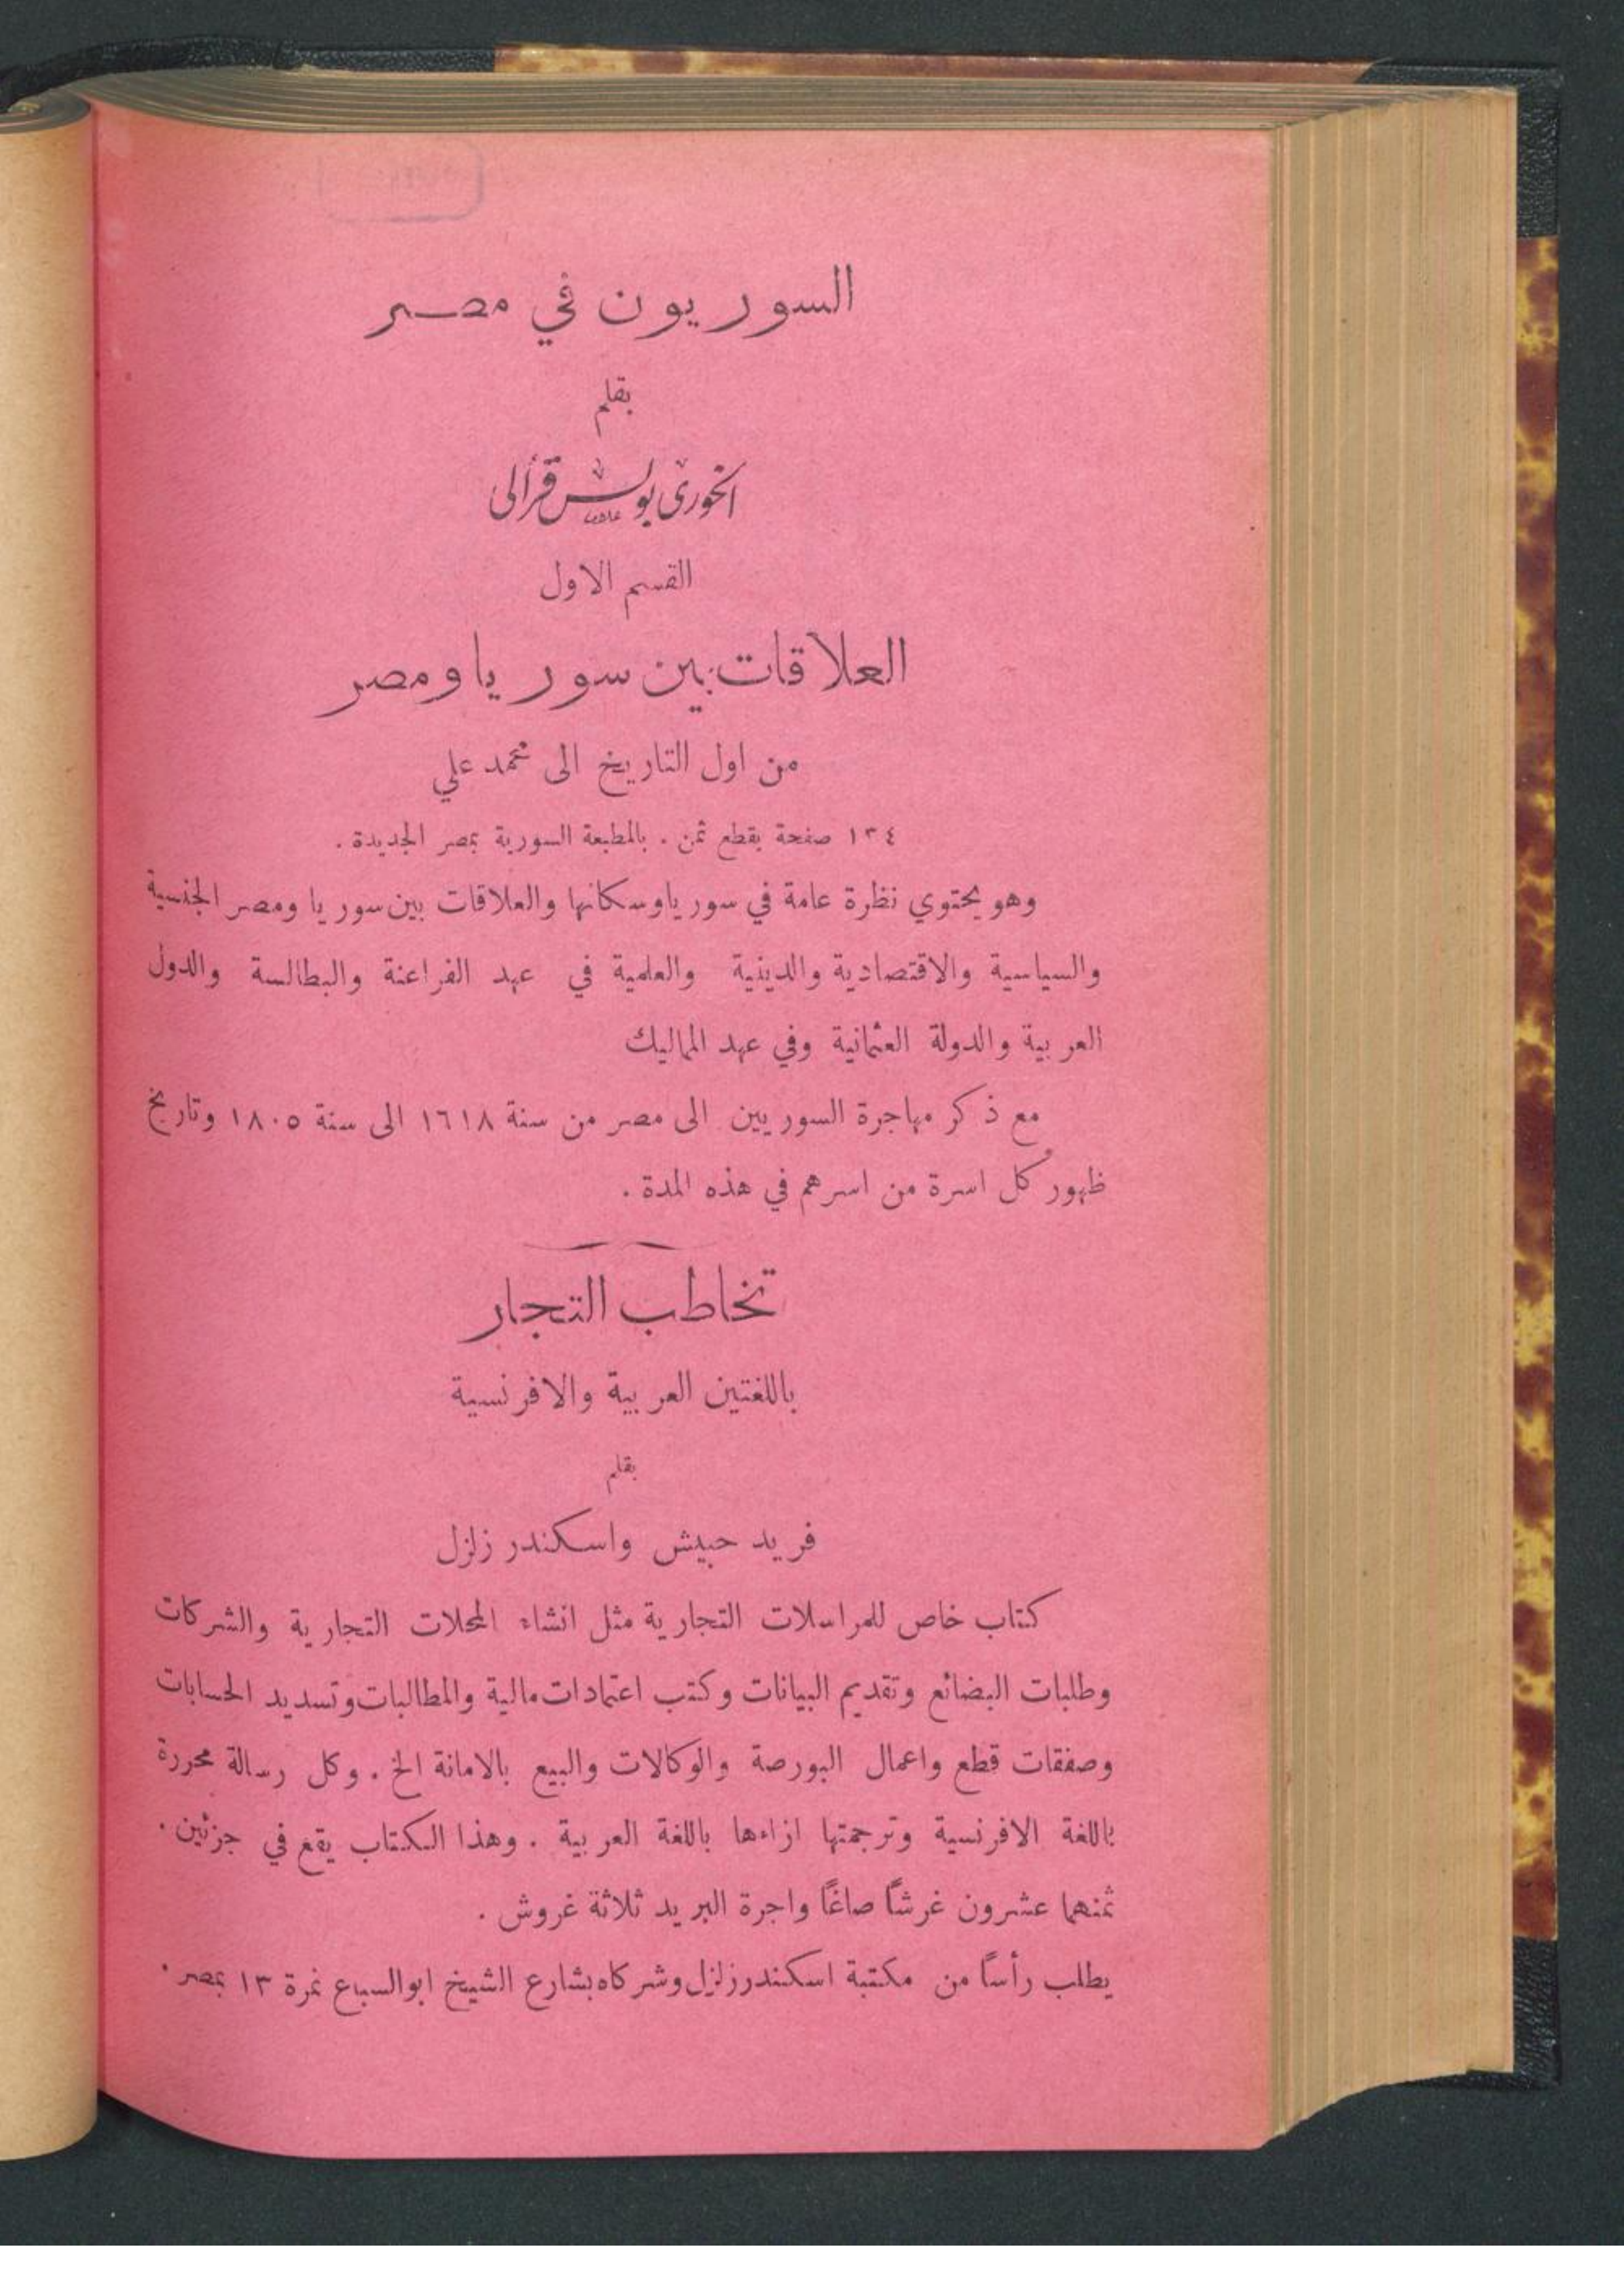 السوريون في مصر
بقلم
الخوري بولس قرألي
القسم الاول
العلاقات بين سوريا ومصر
من اول التاريخ الى محمد علي
١٣٤ صفحة بقطع ثمن . بالمطبعة السورية بمصر الجديدة .
وهو يحتوي نظرة عامة في سوريا وسكانها والعلاقات بين سوريا ومصر الجنسية
والسياسية والاقتصادية والدينية والعلمية في عهد الفراعنة والبطالسة والدول
العربية والدولة العثمانية وفي عهد المماليك
مع ذكر مهاجرة السوريين الى مصر من سنة ١٦١٨ الى سنة ١٨٠٥ وتاريخ
ظهور كل اسرة من اسرهم في هذه المدة .
تخاطب التجار
باللغتين العربية والافرنسية
بقلم
فريد حبيش واسكندر زلزل
كتاب خاص للمراسلات التجارية مثل انشاء المحلات التجارية والشركات
وطلبات البضائع وتقديم البيانات وكتب اعتمادات مالية والمطالبات وتسديد الحسابات
وصفقات قطع واعمال البورصة والوكالات والبيع بالامانة الخ . وكل رسالة محررة
باللغة الافرنسية وترجمتها ازاءها باللغة العربية . وهذا الكتاب يقع في جزئين .
ثمنهما عشرون غرشاً صاغاً واجرة البريد ثلاثة غروش .
يطلب رأساً من مكتبة اسكندر زلزل وشركاه بشارع الشيخ ابو السباع نمرة ١٣ بمصر .